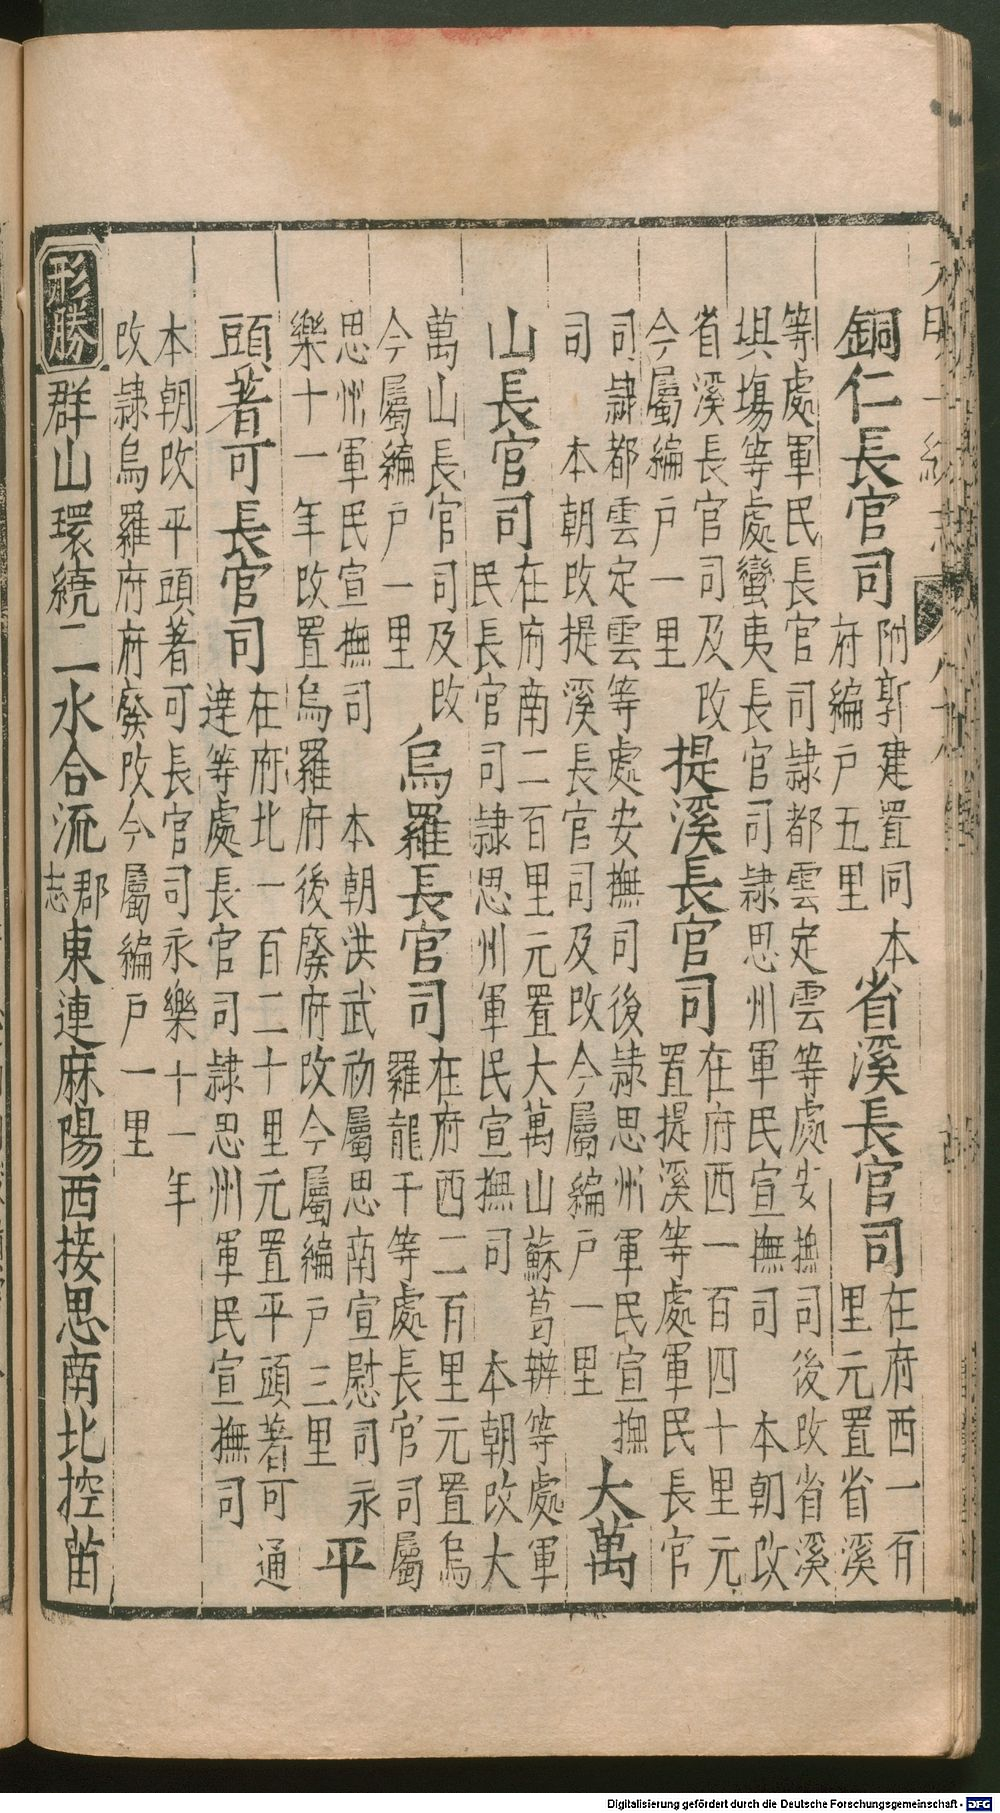 銅仁長官司
附郭建置同本
府編戶五里
省溪長官司
在府西一百
里元置省溪
等處軍民長官司隸都雲定雲等處安撫司後改省溪
埧塲等處蠻夷長官司隸思州軍民宣撫司　本朝改
省溪長官司及改
今屬編戶一里
提溪長官司
在府西一百四十里元
置提溪等處軍民長官
司隸都雲定雲等處安撫司後隸思州軍民宣撫
司　本朝改提溪長官司及改今屬編戶一里
大萬
山長官司
在府南二百里元置大萬山蘇葛辦等處軍
民長官司隸思州軍民宣撫司　本朝改大
萬山長官司及改
今屬編戶一里
烏羅長官司
在府西二百里元置烏
羅龍干等處長官司屬
思州軍民宣撫司　本朝洪武初屬思南宣慰司永
樂十一年改置烏羅府後廢府改今屬編戶三里
平
頭著可長官司
在府北一百二十里元置平頭著可通
達等處長官司隸思州軍民宣撫司
本朝改平頭著可長官司永樂十一年
改隸烏羅府府廢改今屬編戶一里
形勝 群山環繞二水合流 郡志 東連麻陽西接思南北控苗
Digitalisierung gefördert durch die Deutsche Forschungsgemeinschaft - DFG